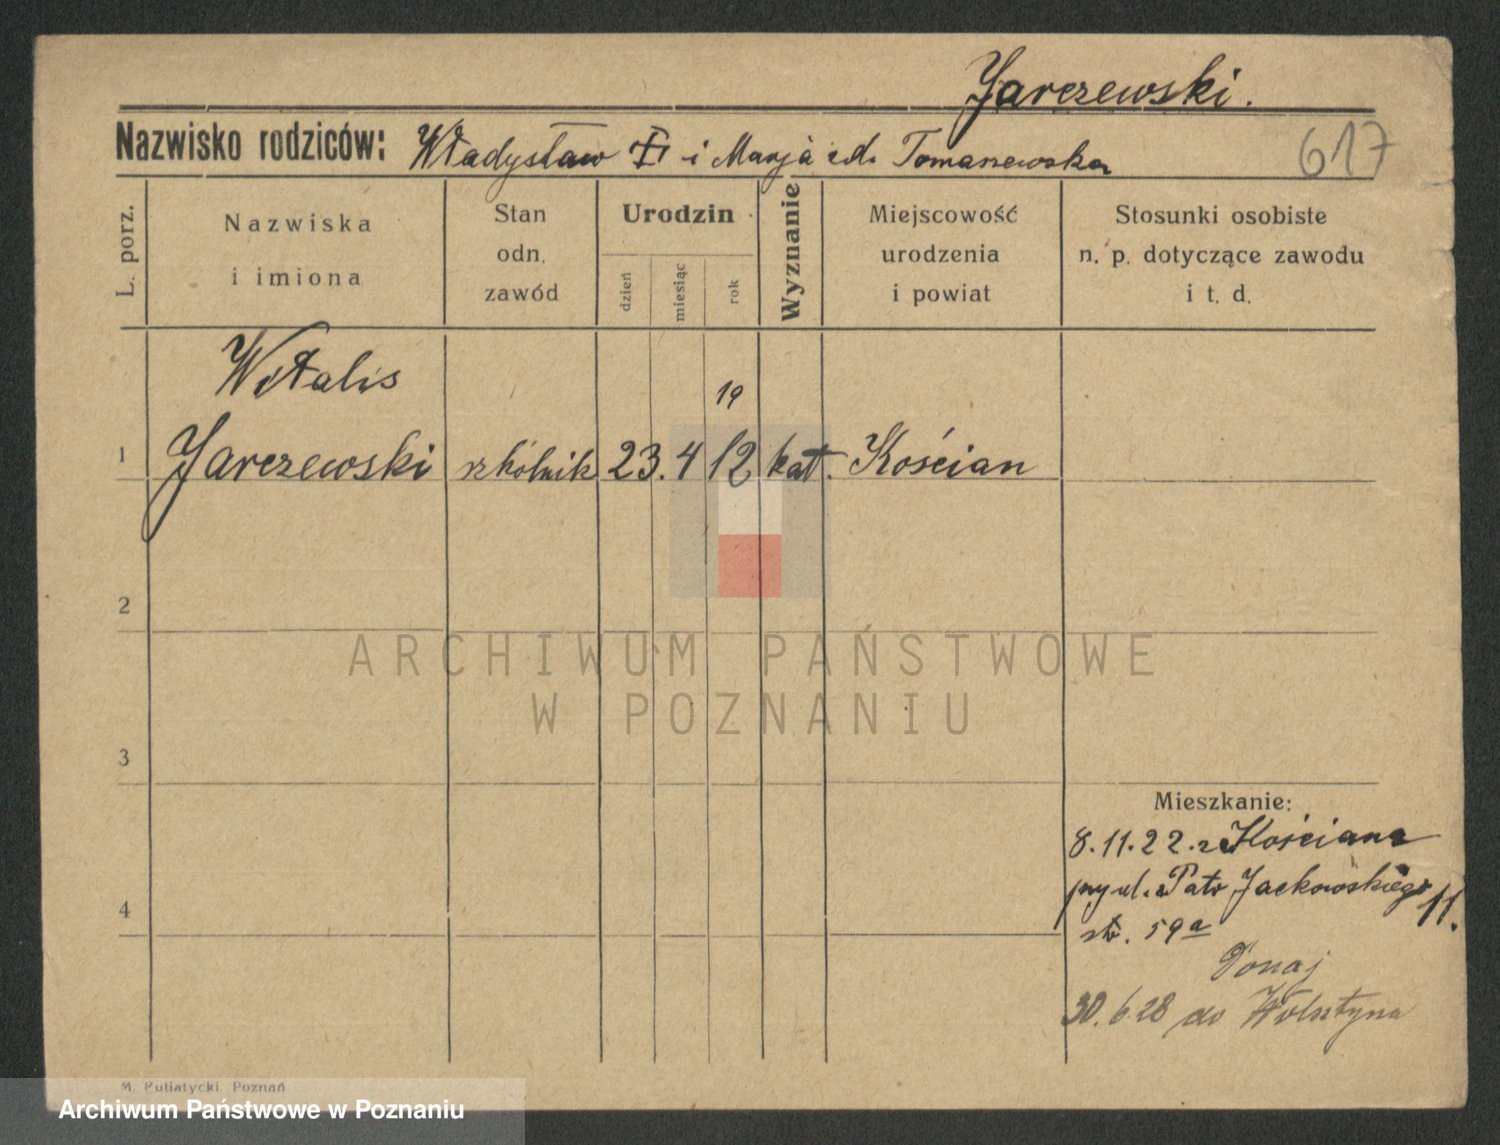 Jarczewski.
Nazwisko rodziców: Władysław i Marja zd. Tomaszewska
617
L. porz.
Nazwiska
i imiona
Stan
odn.
zawód
Urodzin
dzień
miesiąc
rok
Wyznanie
Miejscowość
urodzenia
i powiat
Stosunki osobiste
n. p. dotyczące zawodu
i t. d.
Witalis
19
1 Jarczewski szkólnik 23. 4 12 kat. Kościan
2
3
4
ARCHIWUM PAŃSTWOWE
W POZNANIU
Mieszkanie:
8.11.22. z Kościana
przy ul. Patr Jackowskiego 11.
str. 59a
30.6.28 do Wolsztyna
M. Putiatycki, Poznań
Archiwum Państwowe w Poznaniu